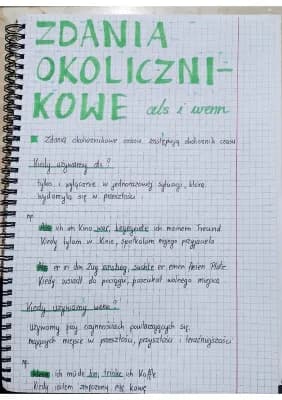 ZDANIA
OKOLICZNI-
KOWE als i wenn
Zdania okolicznikowe czasu zastępują okolicznik czasu
Kiedy używamy als?
tylko i wyłącznie w jednorazowej sytuacji, która
wydarzyła się w przeszłości
np.
Als ich im Kino war, begegnete ich meinem Freund
Kiedy byłam w kinie, spotkałam mojego przyjaciela
Als er in den Zug einstieg, suchte er einen freien Platz
Kiedy wsiadł do pociągu, poszukał wolnego miejsca
Kiedy używamy wenn?
Używamy przy czynnościach powtarzających się,
mających miejsce w przeszłości, przyszłości i teraźniejszości
np.
Wenn ich müde bin, trinke ich Kaffe
Kiedy jestem zmęczony piję kawę